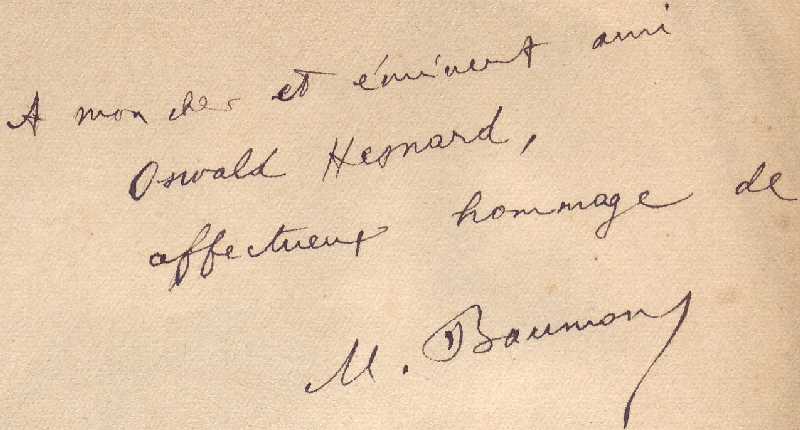 A mon cher et éminent ami
Oswald Hesnard,
affectueux hommage de
M. Baumont